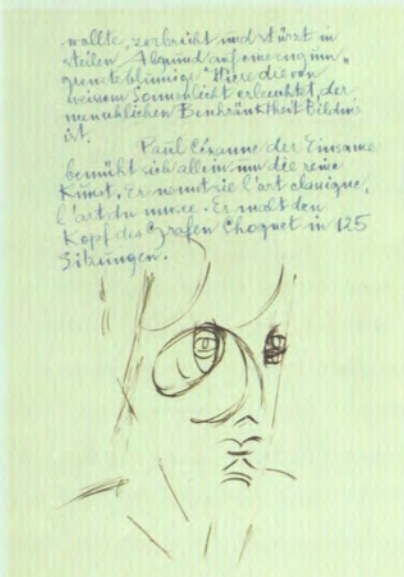 wollte, zerbricht und stürzt in
steilen Abgrund auf eine eng um-
grenzte blumige Wiese die von
weissem Sonnenlicht erleuchtet, der
menschlichen Beschränktheit Bildnis
ist.
Paul Cézanne der Einsame
bemüht sich allein um die reine
Kunst. Er nennt sie l'art classique,
l'art du musée. Er malt den
Kopf des Grafen Choquet in 125
Sitzungen.